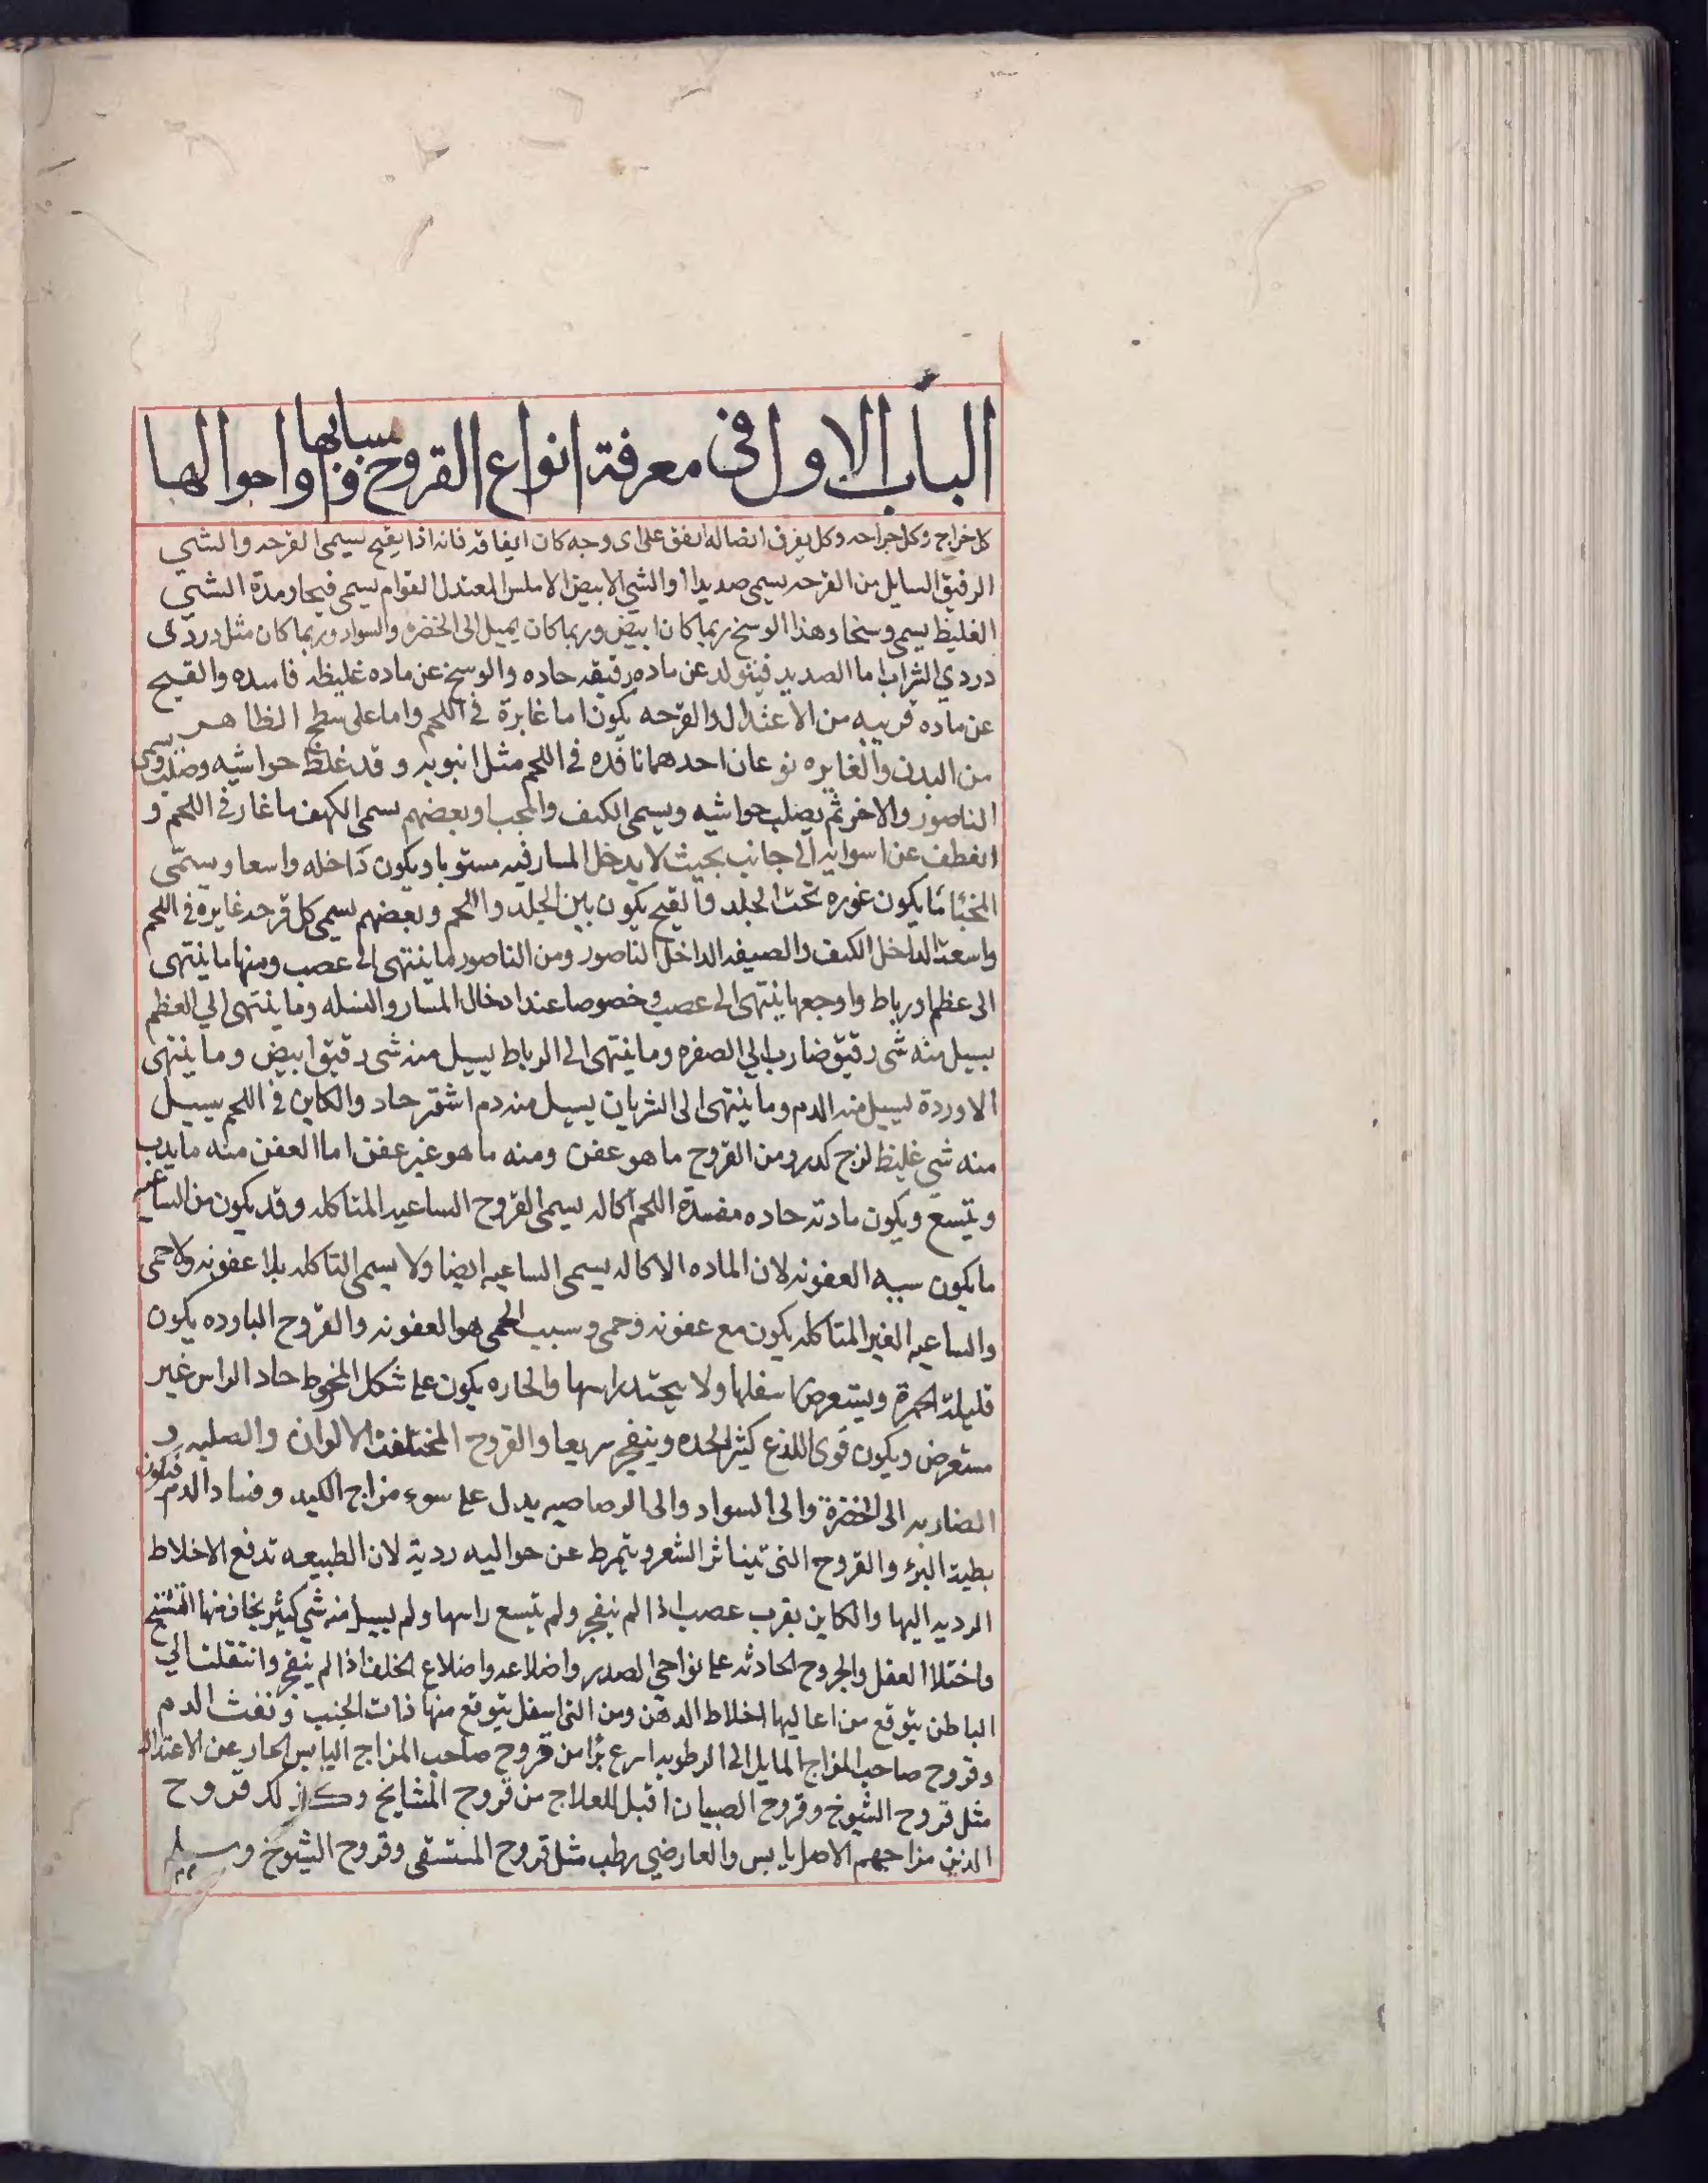 الباب الاول فى معرفة انواع القروح واسبابها واحوالها
كل خراج وكل جراحه وكل تفرق اتصاله اتفق على اى وجه كان ايفاقه فانه اذا يقيح يسمى القرحه والشي
الرقيق السايل من القرحه يسمى صديدا والشي الابيض الاملس المعتدل القوام يسمى قيحا ومدة الشي
الغليظ يسمى وسخا وهذا الوسخ ربما كان ابيض وربما كان يميل الى الخضرة والسواد وربما كان مثل دردى
دردي الشراب اما الصديد فيتولد عن ماده رقيقه حاده والوسخ عن ماده غليظه فاسده والقيح
عن ماده قريبه من الاعتدال والقرحه يكون اما غايرة فى اللحم واما على سطح الظاهر
من البدن والغايره نوعان احدهما نافذه فى اللحم مثل انبوبه وقد غلظ حواشيه وصلب ويسمى
الناصور والاخر ثم يصلب حواشيه ويسمى الكهف والمجب وبعضهم يسمى الكهف ما غار فى اللحم و
انعطف عن اسوايه الى جانب بحيث لا يدخل المسار فيه مستويا ويكون داخله واسعا ويسمى
المخبا ما يكون غوره تحت الجلد والقيح يكون بين الجلد واللحم وبعضهم يسمى كل قرحه غايره فى اللحم
واسعة الداخل الكهف والضيقه الداخل الناصور ومن الناصور ما ينتهى الى عصب ومنها ما ينتهى
الى عظم او رباط واوجعها ينتهى الى عصب وخصوصا عند ادخال المسار والنسله وما ينتهى الي العظم
يسيل منه شى رقيق ضارب الي الصفره وما ينتهى الى الرباط يسيل منه شى رقيق ابيض وما ينتهى
الاوردة يسيل منه الدم وما ينتهى الى الشريان يسيل منه دم اشقر حاد والكاين فى اللحم يسيل
منه شى غليظ لزج كدر ومن القروح ما هو عفن ومنه ما هو غير عفن اما العفن منه ما يدب
ويتسع ويكون مادته حاده مفسدة اللحم اكاله يسمى القروح الساعيه المتاكله وقد يكون من الساعيه
ما يكون سببه العفونه لان الماده الاكاله يسمى الساعيه ايضا ولا يسمى التاكله بلا عفونه ولا حمى
والساعيه الغير المتاكله يكون مع عفونه وحمى وسبب الحمى هو العفونه والقروح البارده يكون
قليلة الحمرة ويستعرض اسفلها ولا يحتد راسها والحاره يكون على شكل المخروط حاد الراس غير
مستعرض ويكون قوى اللذع كثير الحده وينفجر سريعا والقروح المختلفة الالوان والصلبه و
الضاربه الى الخضرة والى السواد والى الرصاصيه يدل على سوء مزاج الكبد وفساد الدم فيكون
بطية البرء والقروح التى تيناثر الشعر ويتمرط عن حواليه ردية لان الطبيعه تدفع الاخلاط
الرديه اليها والكاين بقرب عصب اذا لم ينفجر ولم يتسع راسها ولم يسيل منه شى كثير يخاف منها التشنج
واختلا العقل والجروح الحادثه على نواحي الصدر واضلاعه واضلاع الخلف اذا لم ينفجر وانتقلت الي
الباطن يتوقع من اعاليها اخلاط الدهن ومن التى اسفل يتوقع منها ذات الجنب ونفث الدم
وقروح صاحب المزاج المايل الى الرطوبه اسرع برًا من قروح صاحب المزاج اليابس الحار عن الاعتدال
مثل قروح الشيوخ وقروح الصبيان اقبل للعلاج من قروح المشايخ وكذلك قروح
الذين مزاجهم الاصل يابس والعارضي رطب مثل قروح المستسقى وقروح الشيوخ